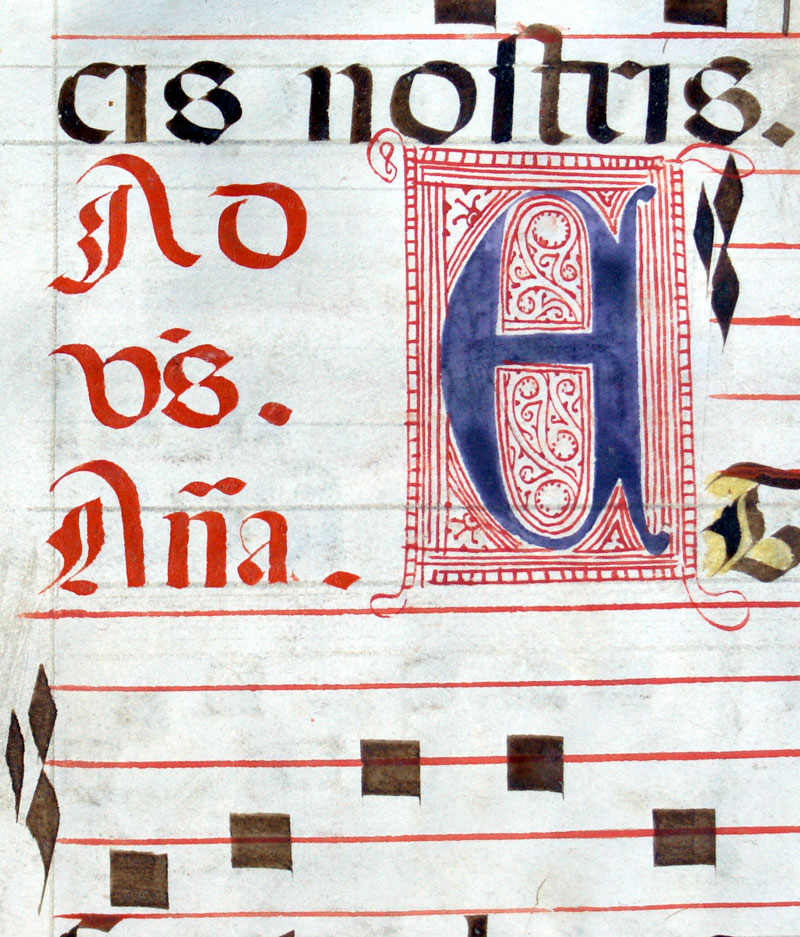 cis noſtris.
Ad
vs̃.
Aña. E